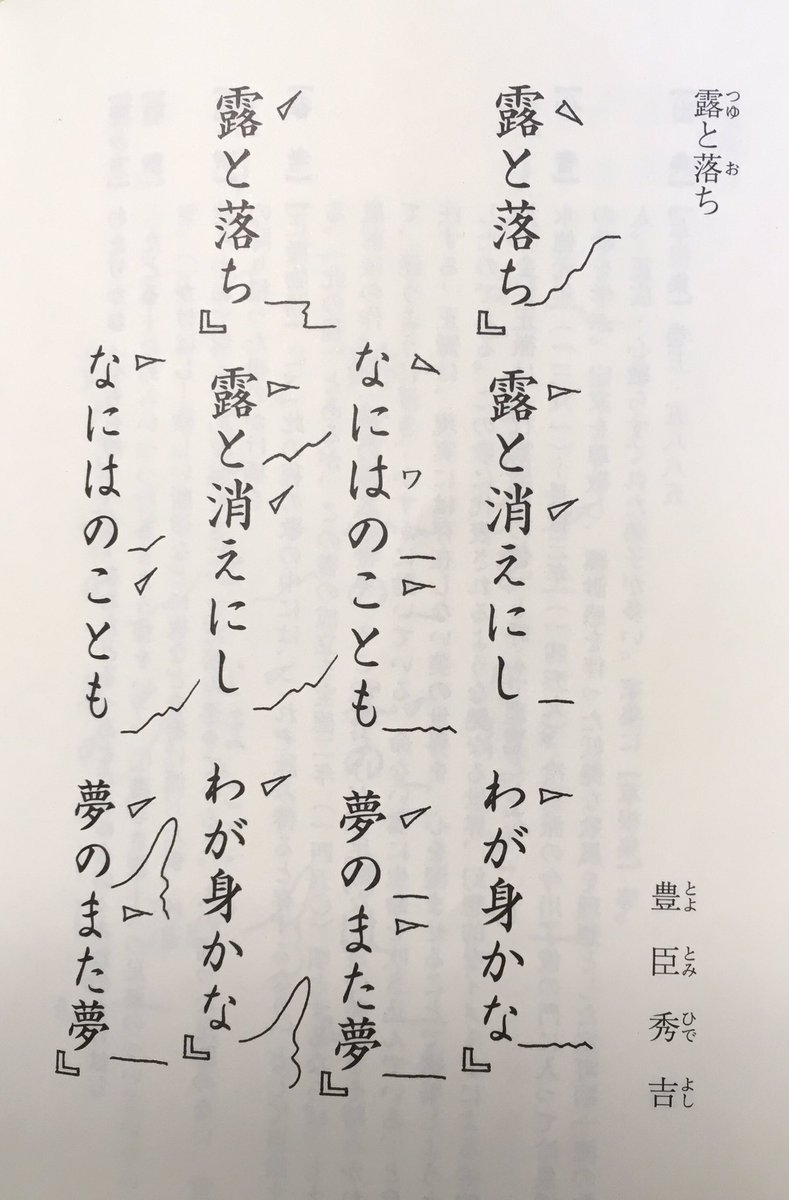 露と落ち
つゆ お
豊臣秀吉
とよ とみ ひで よし
露と落ち』 露と消えにし わが身かな』
なにはのことも 夢のまた夢』
ワ
露と落ち』 露と消えにし わが身かな』
なにはのことも 夢のまた夢』